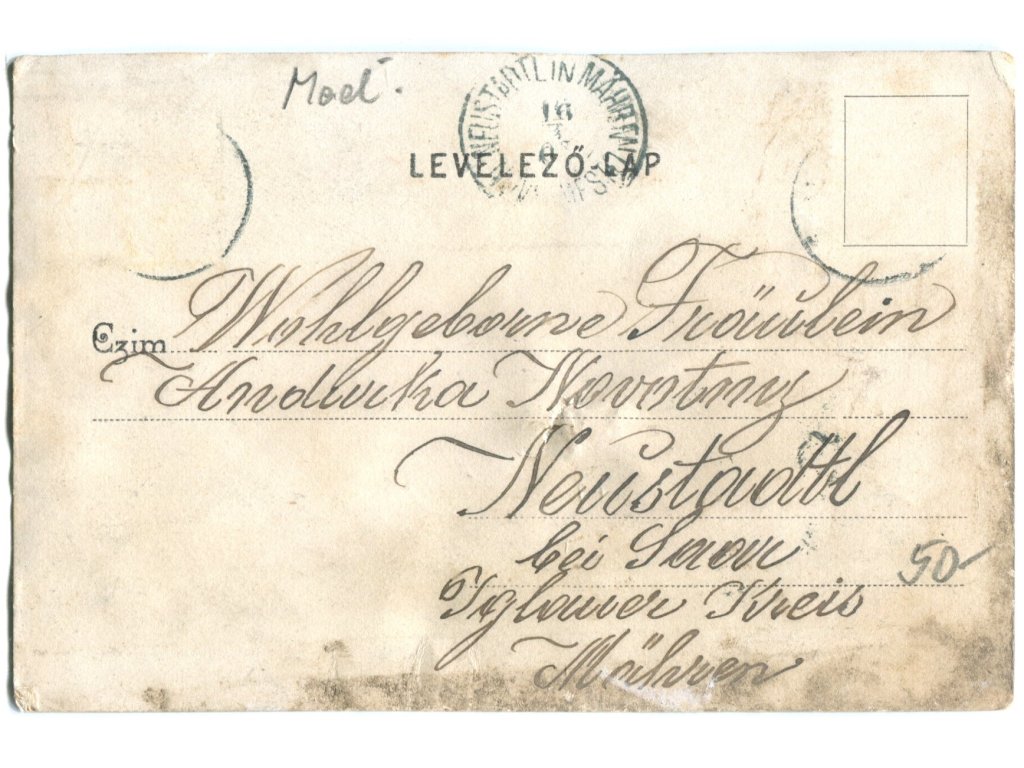 Mod.
NEUSTADTL IN MÄHREN
16
LEVELEZŐ-LAP
Czim Wohlgeborne Fräulein
Novotny
Neustadtl
bei Saar
50-
Iglauer Kreis
Mähren